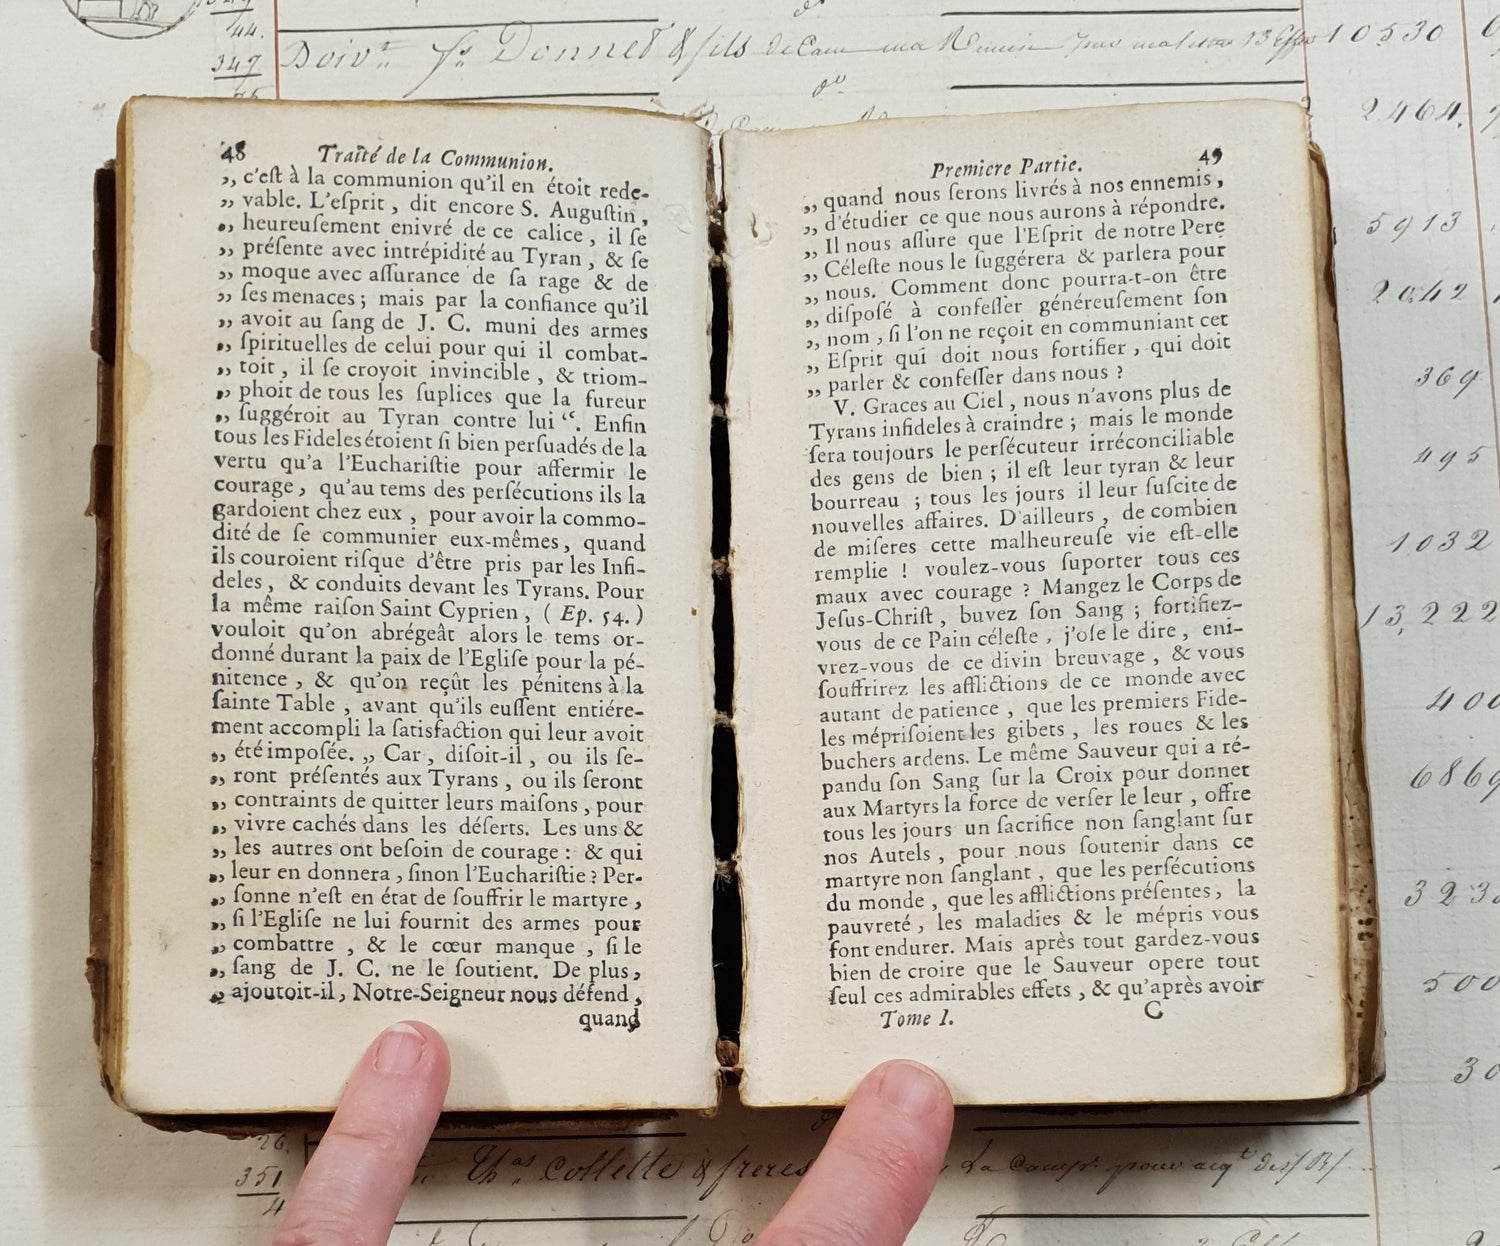 44.
347
Doiv.t Donnet & fils 10530
2464.
48 Traité de la Communion.
„ c'eſt à la communion qu'il en étoit rede-
„ vable. L'eſprit, dit encore S. Auguſtin,
„ heureuſement enivré de ce calice, il ſe
„ préſente avec intrépidité au Tyran, & ſe
„ moque avec aſſurance de ſa rage & de
„ ſes menaces; mais par la confiance qu'il
„ avoit au ſang de J. C. muni des armes
„ ſpirituelles de celui pour qui il combat-
„ toit, il ſe croyoit invincible, & triom-
„ phoit de tous les ſuplices que la fureur
„ ſuggéroit au Tyran contre lui “. Enfin
tous les Fideles étoient ſi bien perſuadés de la
vertu qu'a l'Euchariſtie pour affermir le
courage, qu'au tems des perſécutions ils la
gardoient chez eux, pour avoir la commo-
dité de ſe communier eux-mêmes, quand
ils couroient riſque d'être pris par les Infi-
deles, & conduits devant les Tyrans. Pour
la même raiſon Saint Cyprien, ( Ep. 54. )
vouloit qu'on abrégeât alors le tems or-
donné durant la paix de l'Egliſe pour la pé-
nitence, & qu'on reçût les pénitens à la
ſainte Table, avant qu'ils euſſent entiére-
ment accompli la ſatisfaction qui leur avoit
„ été impoſée. „ Car, diſoit-il, ou ils ſe-
„ ront préſentés aux Tyrans, ou ils ſeront
„ contraints de quitter leurs maiſons, pour
„ vivre cachés dans les déſerts. Les uns &
„ les autres ont beſoin de courage: & qui
„ leur en donnera, ſinon l'Euchariſtie? Per-
„ ſonne n'eſt en état de ſouffrir le martyre,
„ ſi l'Egliſe ne lui fournit des armes pour
„ combattre, & le cœur manque, ſi le
„ ſang de J. C. ne le ſoutient. De plus,
„ ajoutoit-il, Notre-Seigneur nous défend,
quand
Premiere Partie. 49
„ quand nous ſerons livrés à nos ennemis,
„ d'étudier ce que nous aurons à répondre.
„ Il nous aſſure que l'Eſprit de notre Pere
„ Céleſte nous le ſuggérera & parlera pour
„ nous. Comment donc pourra-t-on être
„ diſpoſé à confeſſer généreuſement ſon
„ nom, ſi l'on ne reçoit en communiant cet
„ Eſprit qui doit nous fortifier, qui doit
„ parler & confeſſer dans nous?
V. Graces au Ciel, nous n'avons plus de
Tyrans infideles à craindre; mais le monde
ſera toujours le perſécuteur irréconciliable
des gens de bien; il eſt leur tyran & leur
bourreau; tous les jours il leur ſuſcite de
nouvelles affaires. D'ailleurs, de combien
de miſeres cette malheureuſe vie eſt-elle
remplie! voulez-vous ſuporter tous ces
maux avec courage? Mangez le Corps de
Jeſus-Chriſt, buvez ſon Sang; fortifiez-
vous de ce Pain céleſte, j'oſe le dire, eni-
vrez-vous de ce divin breuvage, & vous
ſouffrirez les afflictions de ce monde avec
autant de patience, que les premiers Fide-
les mépriſoient les gibets, les roues & les
buchers ardens. Le même Sauveur qui a ré-
pandu ſon Sang ſur la Croix pour donner
aux Martyrs la force de verſer le leur, offre
tous les jours un ſacrifice non ſanglant ſur
nos Autels, pour nous ſoutenir dans ce
martyre non ſanglant, que les perſécutions
du monde, que les afflictions préſentes, la
pauvreté, les maladies & le mépris vous
font endurer. Mais après tout gardez-vous
bien de croire que le Sauveur opere tout
ſeul ces admirables effets, & qu'après avoir
Tome I. C
5913
2042
369
495
1032
13,222
400
6869
323
500
30
26.
351
4
Th.as Collette & freres